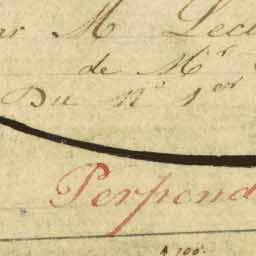 ar M Lecu
de Mr
Du No 1er
Perpend
A 100